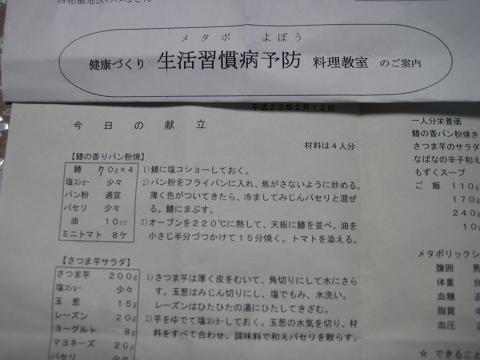 メタボ よぼう
健康づくり 生活習慣病予防 料理教室 のご案内
平成23年2月12日
今日の献立
材料は4人分
【鰆の香りパン粉焼】
鰆 70g×4
塩コショー 少々
パン粉 適宜
パセリ 少々
油 10cc
ミニトマト 8ケ
1)鰆に塩コショーしておく。
2)パン粉をフライパンに入れ、焦がさないように炒める。
薄く色がついてきたら、冷ましてみじんパセリと混ぜ
る。鰆にまぶす。
3)オーブンを220℃に熱して、天板に鰆を並べ、油を
小さじ半分づつかけて15分焼く。トマトを添える。
【さつま芋サラダ】
さつま芋 200g
塩コショー 少々
玉葱 15g
レーズン 20g
ヨーグルト 8g
マヨネーズ 20g
パセリ 少々
1)さつま芋は厚く皮をむいて、角切りにして水にさら
す。玉葱はみじん切りにし、塩でもみ、水洗い。
レーズンはひたひたの湯にひたしてきざむ。
2)芋をゆでて塩コショーしておく。玉葱の水気を切り、材
料をすべて合わせ、調味料で和えパセリを散らす。
一人分栄養価
鰆の香りパン粉焼き
さつま芋のサラダ
なばなの辛子和え
もずくスープ
ご飯 110g
170g
240g
10g
メタボリックシ
腹囲 男
体重 目
血糖 正
脂質 中
血圧 正
☆ できること